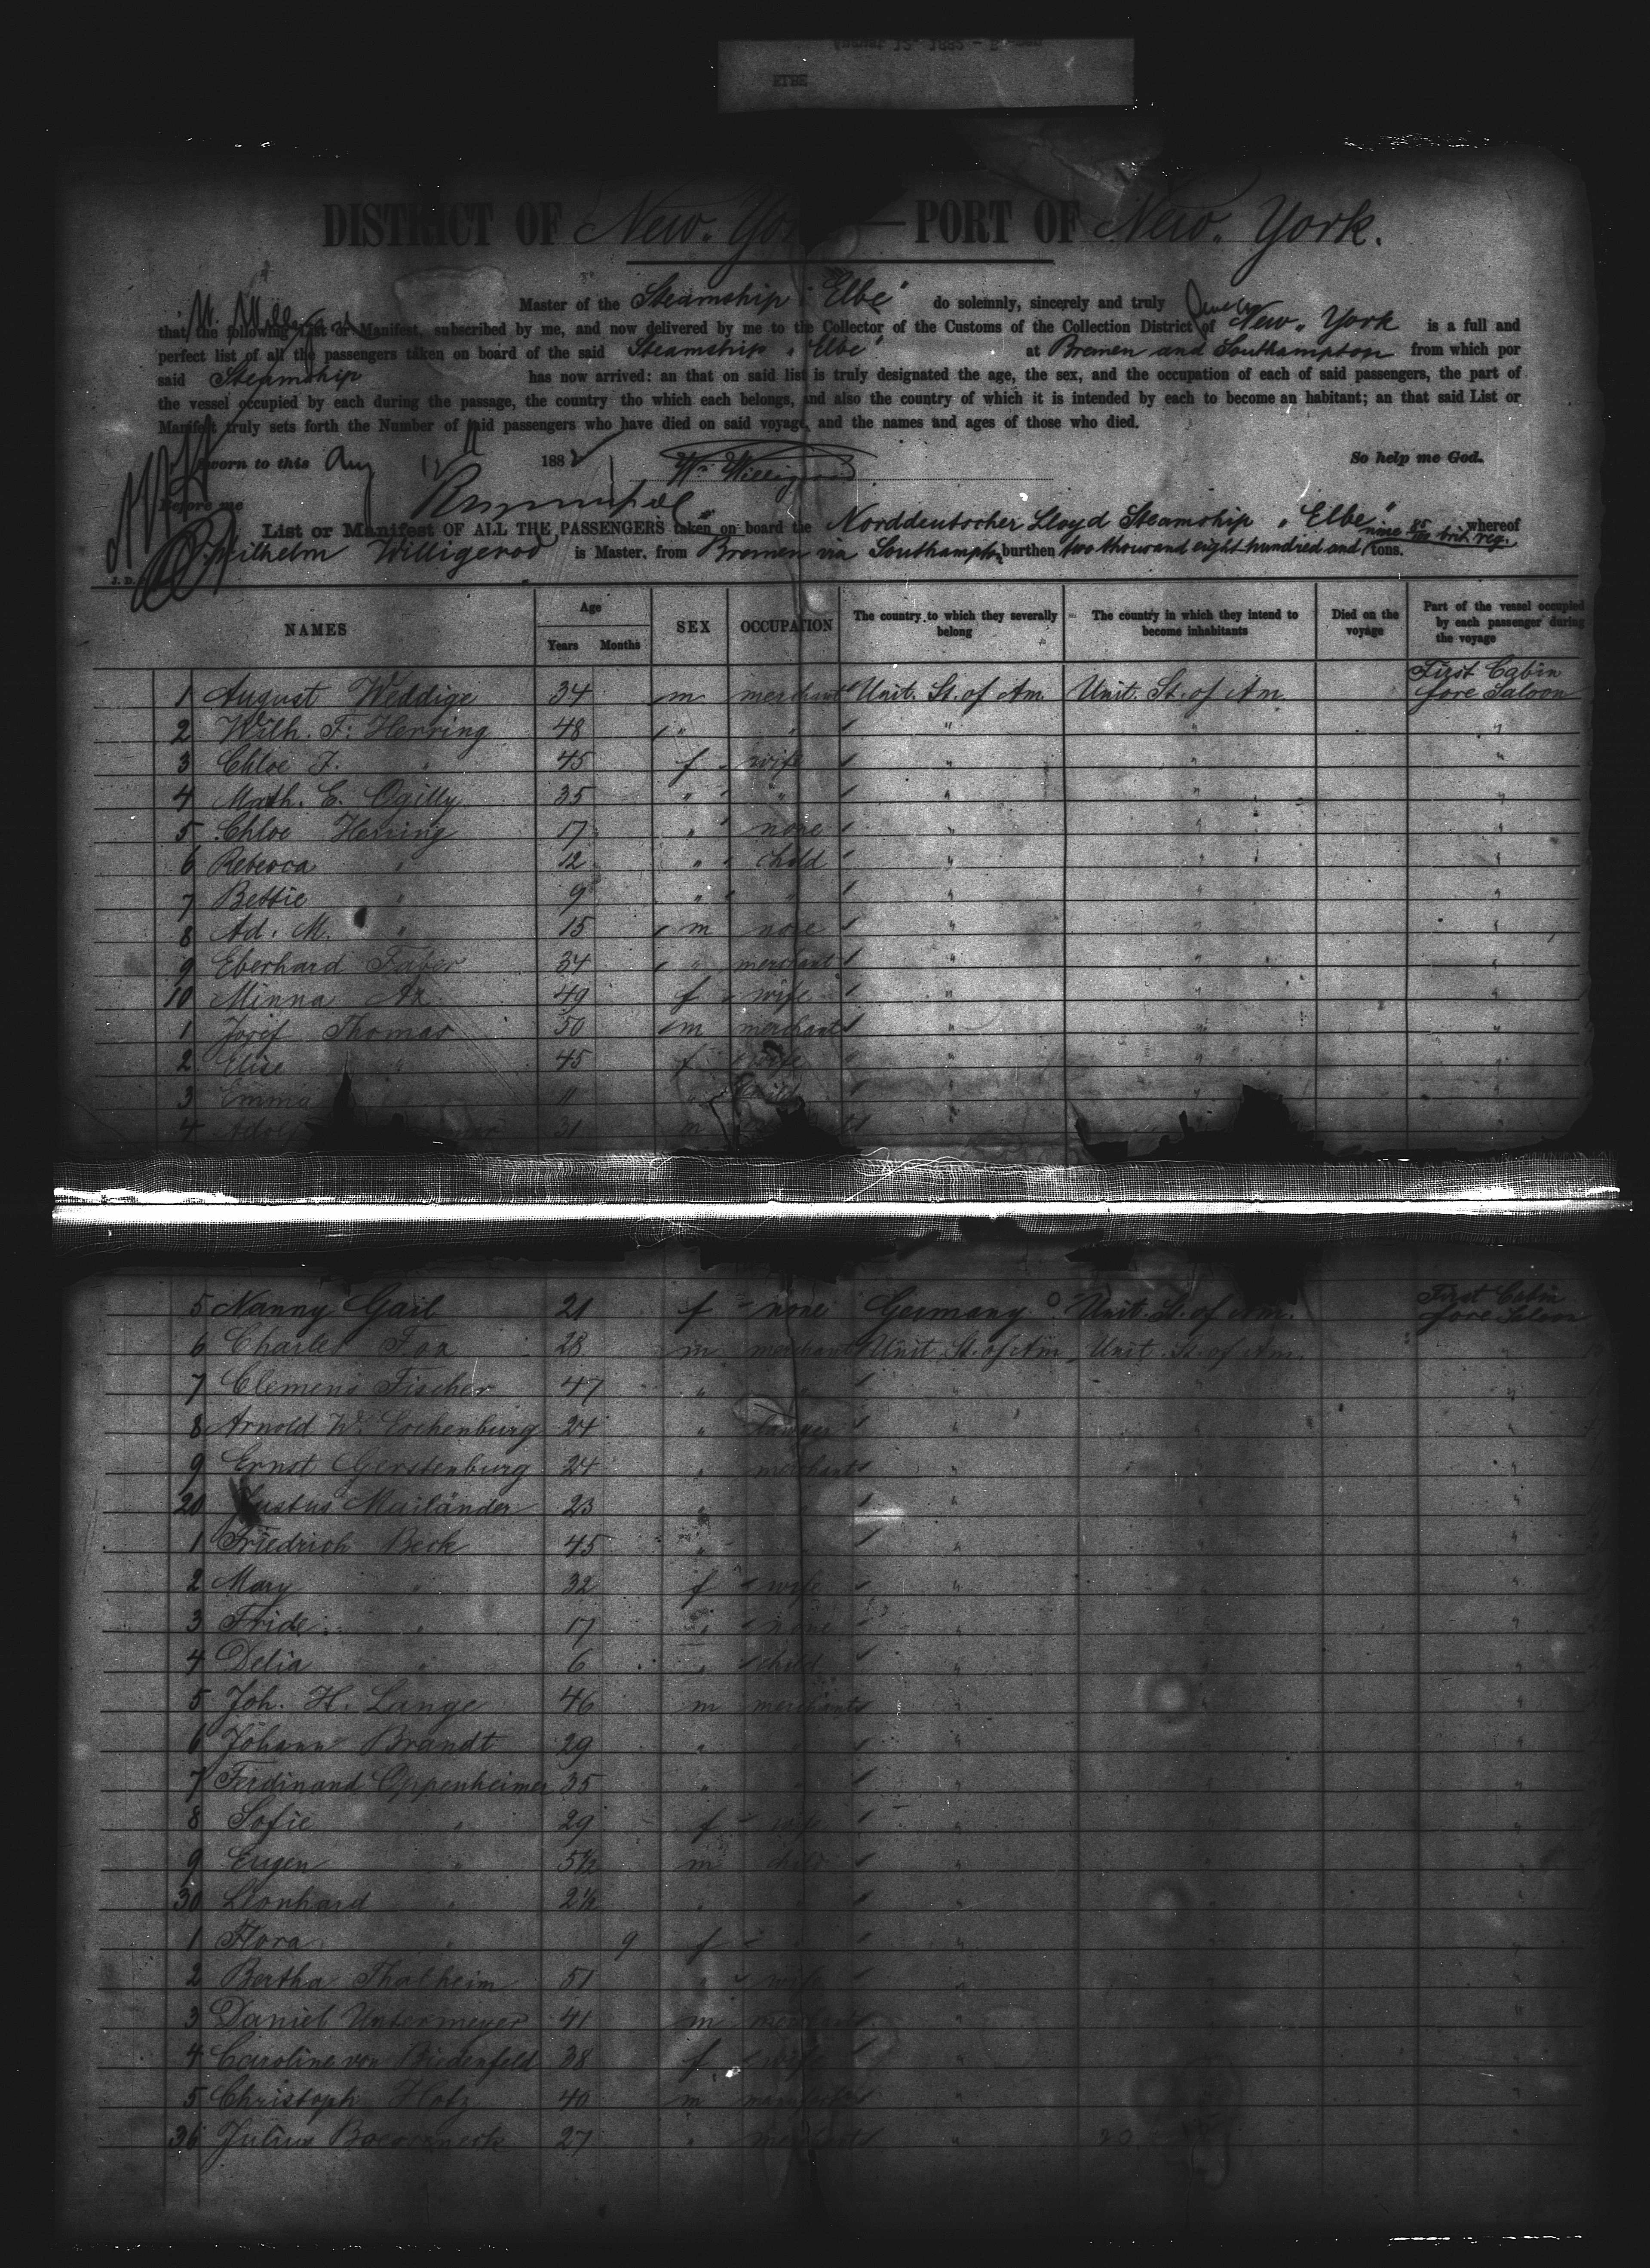 ELBE
DISTRICT OF New. Yo — PORT OF New. York.
Master of the Steamship "Elbe" do solemnly, sincerely and truly
that the following List or Manifest, subscribed by me, and now delivered by me to the Collector of the Customs of the Collection District of New. York is a full and
perfect list of all the passengers taken on board of the said Steamship "Elbe" at Bremen and Southampton from which por
said Steamship has now arrived: an that on said list is truly designated the age, the sex, and the occupation of each of said passengers, the part of
the vessel occupied by each during the passage, the country tho which each belongs, and also the country of which it is intended by each to become an habitant; an that said List or
Manifest truly sets forth the Number of said passengers who have died on said voyage, and the names and ages of those who died.
Sworn to this Aug 188 W. Willigerod So help me God.
Before me
List or Manifest OF ALL THE PASSENGERS taken on board the Norddeutscher Lloyd Steamship "Elbe" whereof
Wilhelm Willigerod is Master, from Bremen via Southampton burthen two thousand eight hundred and nine 85/100 brit. reg. tons.
J. D.
NAMES Age Years Months SEX OCCUPATION The country to which they severally belong The country in which they intend to become inhabitants Died on the voyage Part of the vessel occupied by each passenger during the voyage
1 August Weddige 34 m merchant Unit. St. of Am. Unit. St. of Am. First Cabin fore Saloon
2 Wilh. F. Herring 48 " " " " "
3 Chloe F. " 45 f wife " " "
4 Math. E. Ogilly 35 " " " " "
5 Chloe Herring 17 " none " " "
6 Rebecca " 12 " child " " "
7 Bettie " 9 " " " " "
8 Ad. M. " 15 m none " " "
9 Eberhard Faber 34 " merchant " " "
10 Minna Ax 49 f wife " " "
1 Josef Thomas 50 m merchant " " "
2 Elise " 45 f wife " " "
3 Emma 11 " child " " "
4 Adolf 31 m " " "
5 Nanny Gail 21 f none Germany Unit. St. of Am. First Cabin fore Saloon
6 Charles Fox 28 m merchant Unit. St. of Am. Unit. St. of Am. "
7 Clemens Fischer 47 " " " " "
8 Arnold W. 24 " " " "
9 Ernst Gerstenburg 24 " merchant " " "
20 Justus Mailänder 23 " " " " "
1 Friedrich Beck 45 " " " " "
2 Mary " 32 f wife " " "
3 Fride. " 17 " none " " "
4 Delia " 6 " child " " "
5 Joh. H. Lange 46 m merchant " " "
6 Johann Brandt 29 " " " " "
7 Ferdinand Oppenheimer 35 " " " " "
8 Sofie " 29 f wife " " "
9 Eugen " 5½ m child " " "
30 Leonhard " 2½ " " " " "
1 Flora " 9 f " " " "
2 Bertha Thalheim 51 " wife " " "
3 Daniel Untermeyer 41 m merchant " " "
4 Caroline von Biedenfeld 38 f wife " " "
5 Christoph Hotz 40 m " " "
36 Julius 27 " merchant " "